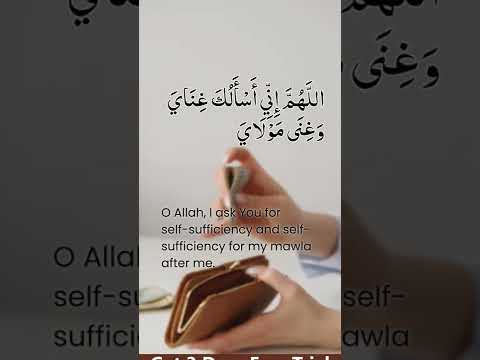 اللَّهُمَّ إِنِّي أَسْأَلُكَ غِنَايَ
وَغِنَى مَوْلَايَ
O Allah, I ask You for
self-sufficiency and self-
sufficiency for my mawla
after me.